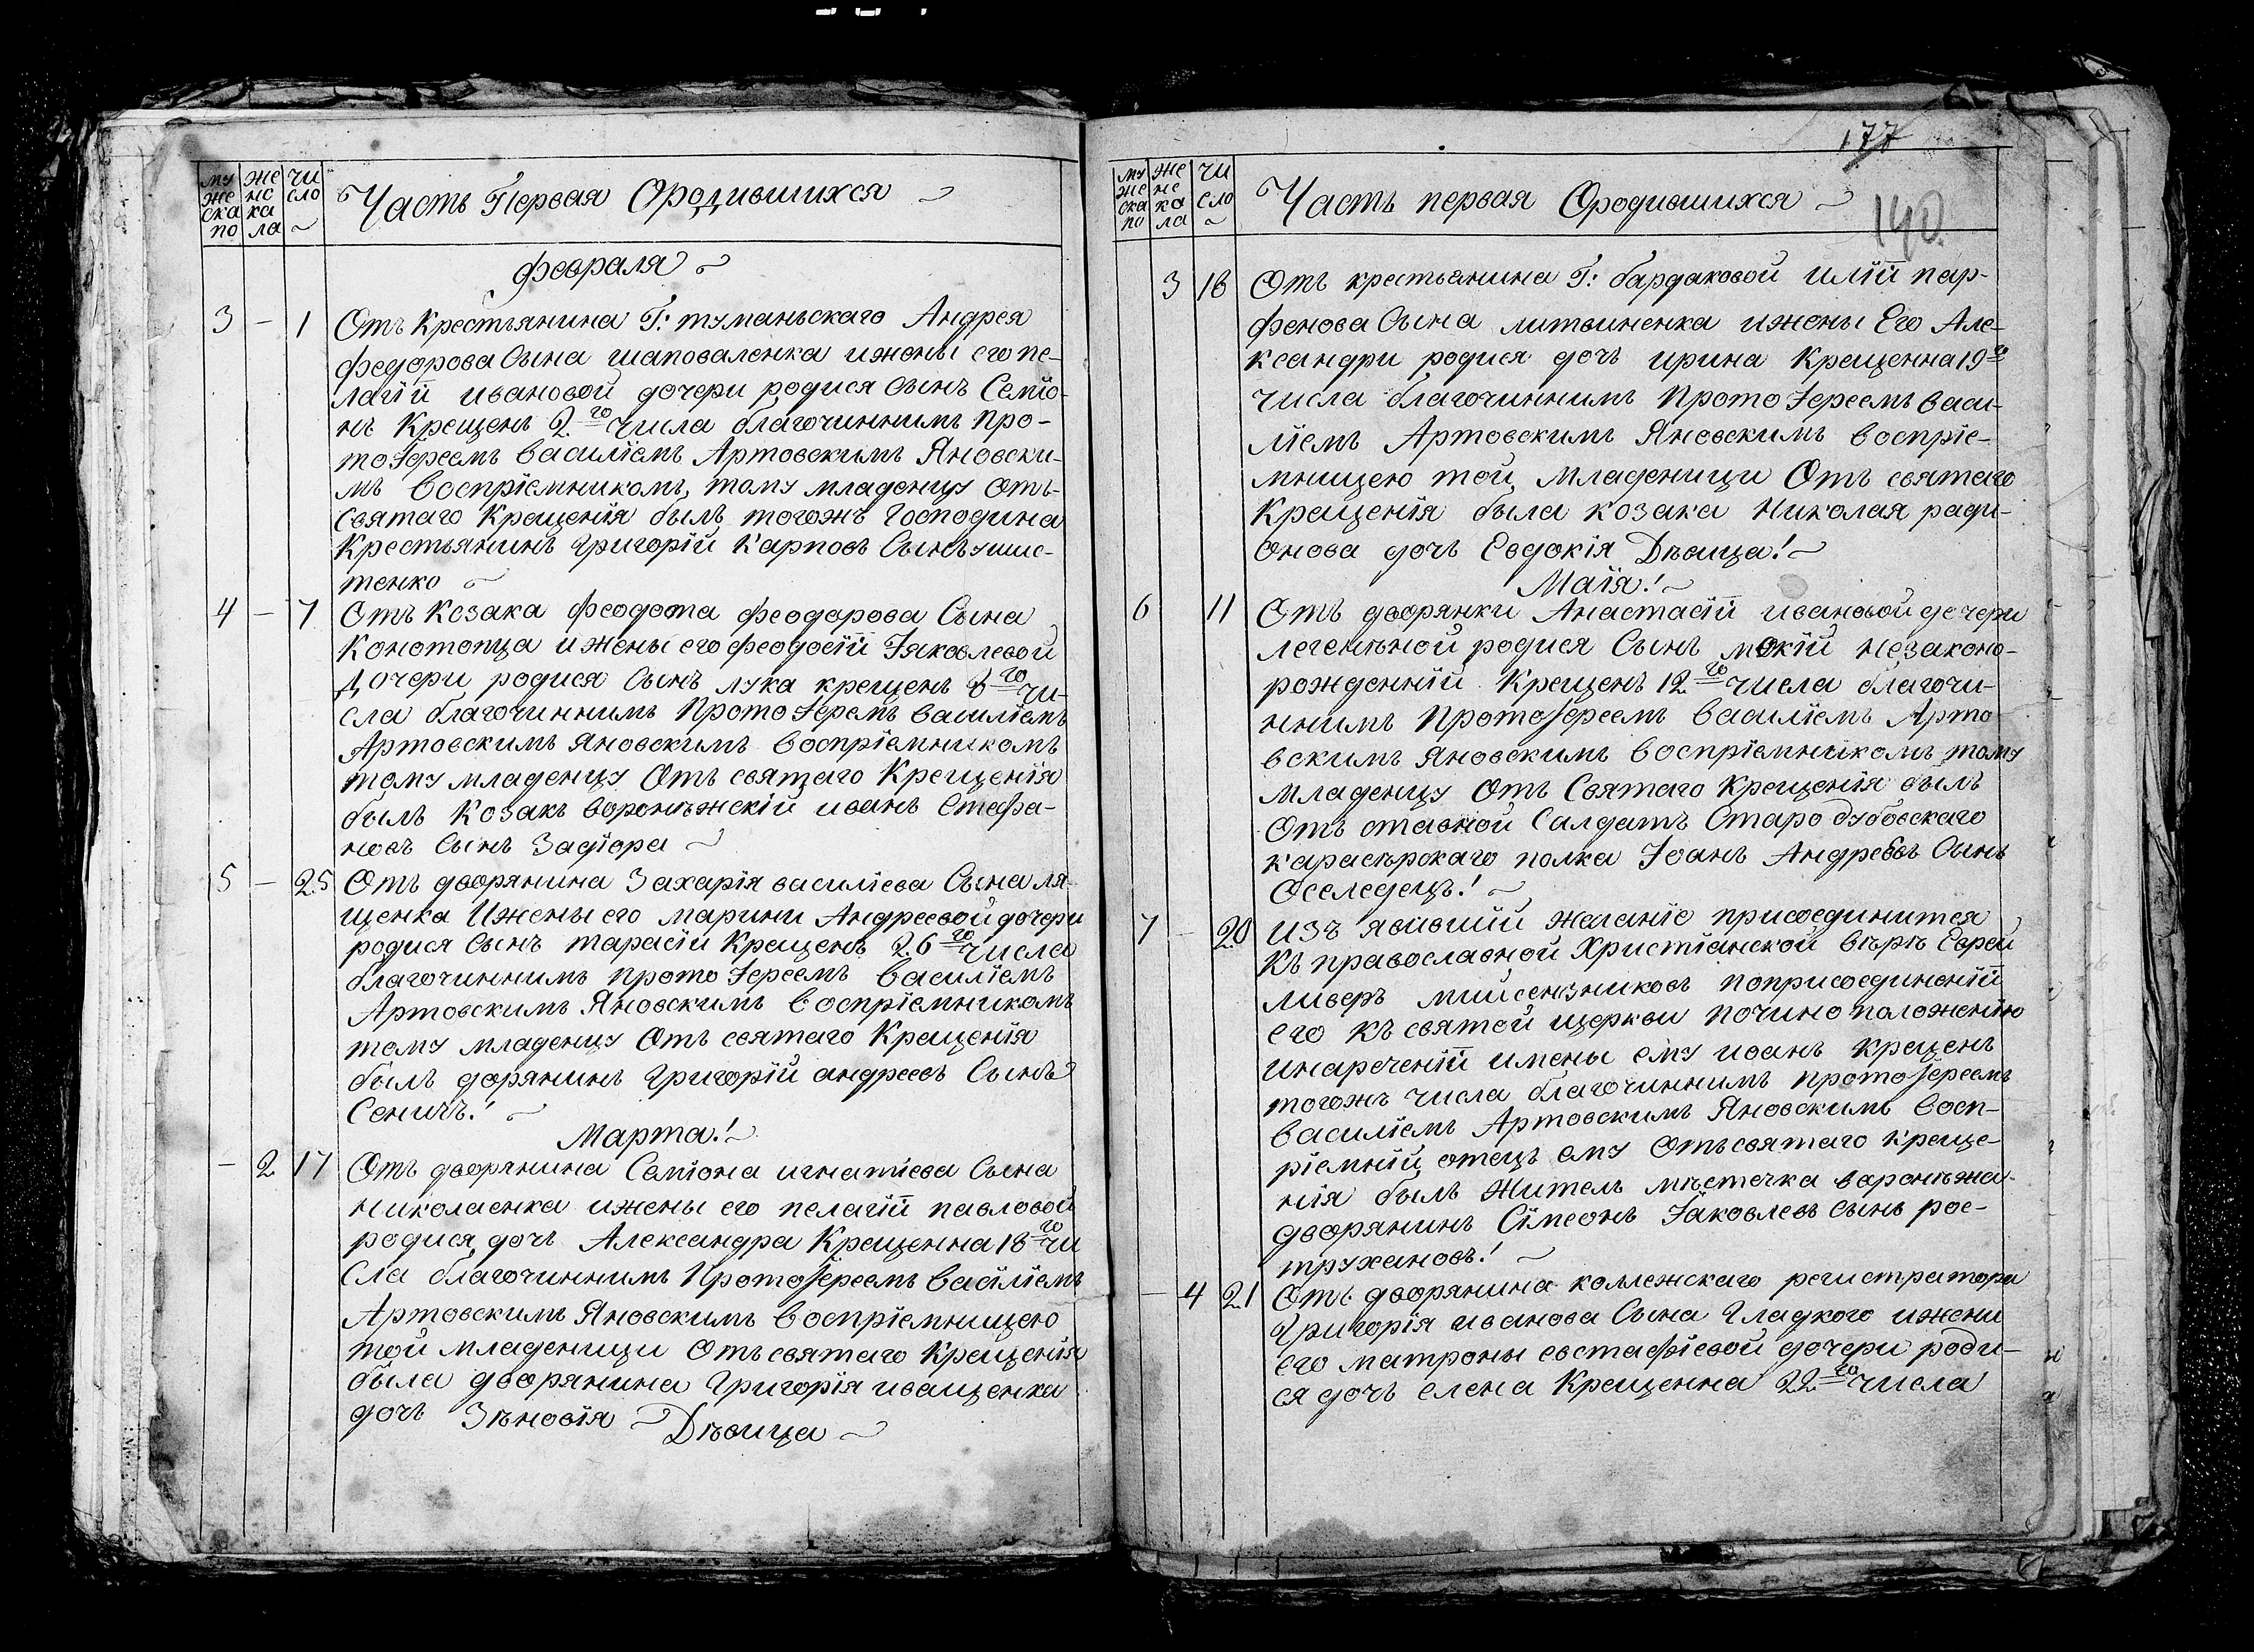 му же ска по
же нс ка ла
чи сло
Часть Первая Ородившихся
февраля
3 – 1 Отъ Крестьянина Г: туманьскаго Андрея
федорова Сына шаповаленка ижены его пе-
лагіи ивановой дочери родися сынъ Семіо-
нъ Крещенъ 2го числа благочиннимъ про-
тоІереемъ василіемъ Артовскимъ Яновски-
мъ воспріемникомъ тому младенцу отъ
святаго Крещенія былъ тогожъ Господина
Крестьянинъ Григорій Карповъ Сынъ
тенко
4 – 7 Отъ Козака феодота феодорова Сына
Конотопца и жены его феодосіи Іяковлевой
дочери родися Сынъ лука крещенъ 8го чи-
сла благочиннимъ ПротоІеремъ василіемъ
Артовскимъ Яновскимъ воспріемникомъ
тому младенцу Отъ святаго Крещенія
былъ Козакъ воронѣжскій иванъ Стефа-
новъ Сынъ Задіора
5 – 25 Отъ дворянина Захарія василіева Сына ля-
щенка Ижены его марини Андреевой дочери
родися Сынъ тарасій Крещенъ 26го числа
благочиннимъ протоІереемъ василіемъ
Артовскимъ Яновскимъ воспріемникомъ
тому младенцу Отъ святаго Крещенія
былъ дорянинъ Григорій андреевъ Сынъ
Сеничъ!
Марта!
– 2 17 Отъ дворянина Семіона игнатіева Сына
николаенка ижены его пелагіи павловой
родися дочь Александра Крещенна 18го чи
сла благочиннимъ ПротоІереемъ василіемъ
Артовскимъ Яновскимъ воспріемницею
той младеници Отъ святаго Крещенія
была дворянина Григорія иващенка
дочь Зѣновія Дѣвица
177
190.
му же ска по
же не ка ла
чи сло
Часть первая Ородившихся
3 18 Отъ крестьянина Г: бардаковой иліи пар-
фенова Сына литвиненка ижены Его Але-
ксандри родися дочь ирина Крещенна 19го
числа благочиннимъ ПротоІереемъ васи-
ліемъ Артовскимъ Яновскимъ воспріе-
мницею той младеници Отъ святаго
Крещенія была козака николая ради-
онова дочь Евдокія Дѣвица!
Маія!
6 11 Отъ дворянки Анастасіи ивановой дочери
легенѣной родися Сынъ мокій незаконо-
рожденній Крещенъ 12го числа благочи-
ннимъ ПротоІереемъ василіемъ Арто
вскимъ Яновскимъ воспріемникомъ тому
младенцу Отъ Святаго Крещенія былъ
Отъ ставной Салдатъ Стародубовскаго
карасѣрскаго полка Іоанъ Андреевъ Сынъ
Оселедецъ!
7 – 20 изъ явившій желаніе присоединится
Къ православной Христіанской вѣрѣ Еврей
ливеръ поприсоединеніи
его къ святой щеркви почино положенію
инареченіи имены ему иоанъ крещенъ
тогожъ числа благочиннимъ протоІереемъ
василіемъ Артовскимъ Яновскимъ восп-
ріемній отецъ ему Отъ святаго креще-
нія былъ Житель мѣстечка варонѣжа
дворянинъ Сімеонъ Іаковлевъ сынъ рос-
трухановъ!
– 4 21 Отъ дворянина колежскаго регистратора
Григорія иванова Сына Гладкого ижени
его матроны евстафіевой дочери роди-
ся дочь елена Крещенна 22го числа